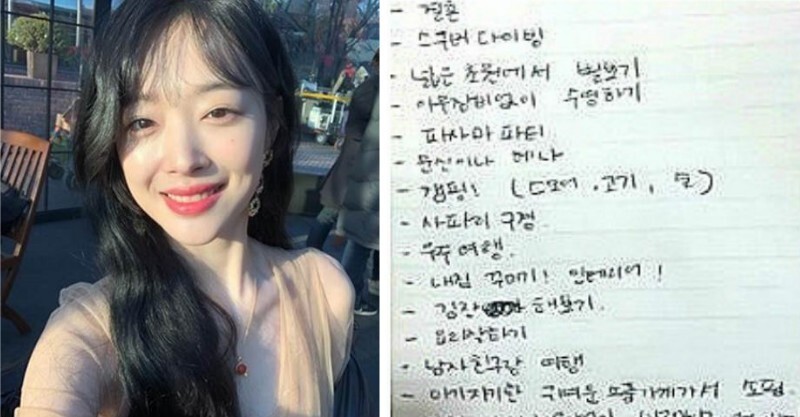 - 결혼
- 스쿠버 다이빙
- 넓은 초원에서 별보기
- 아무장비없이 수영하기
- 파자마 파티
- 문신이나 헤나
- 캠핑! ( , 고기, )
- 사파리 구경.
- 우주 여행.
- 내집 꾸미기! 인테리어!
- 김장 해보기.
- 요리잘하기
- 남자친구랑 여행
- 아기자기한 귀여운 소품가게가서 쇼핑.